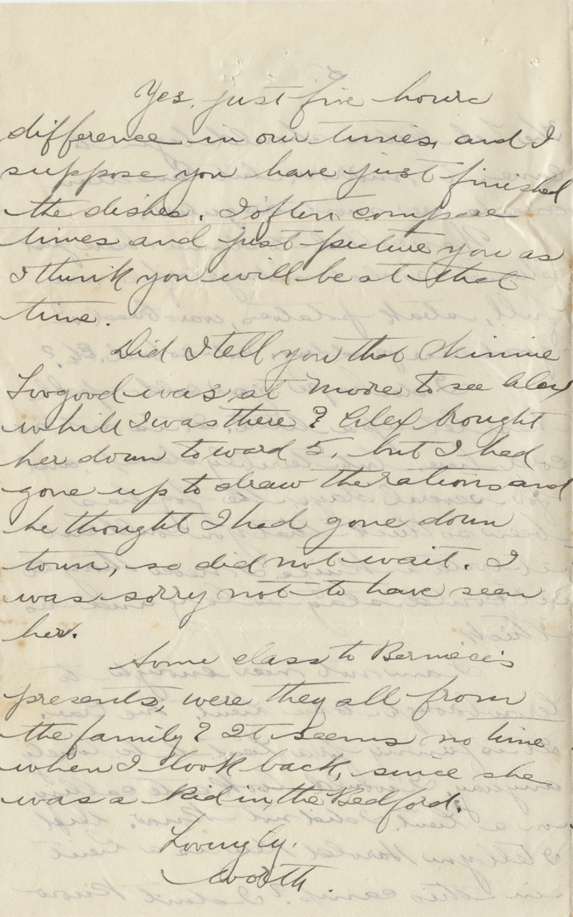 Yes, just five hours
difference in our times, and I
suppose you have just finished
the dishes. I often compose
times and just picture you as
I think you will be at that
time.
Did I tell you that Minnie
Toogood was at Moore to see Alex
while I was there? Alex brought
her down to ward 5, but I had
gone up to draw the rations and
he thought I had gone down
town, so did not wait. I
was sorry not to have seen
her.
Some class to Berneice's
presents, were they all from
the family? It seems no time
when I look back, since she
was a kid in the Bedford.
Lovingly.
Worth.